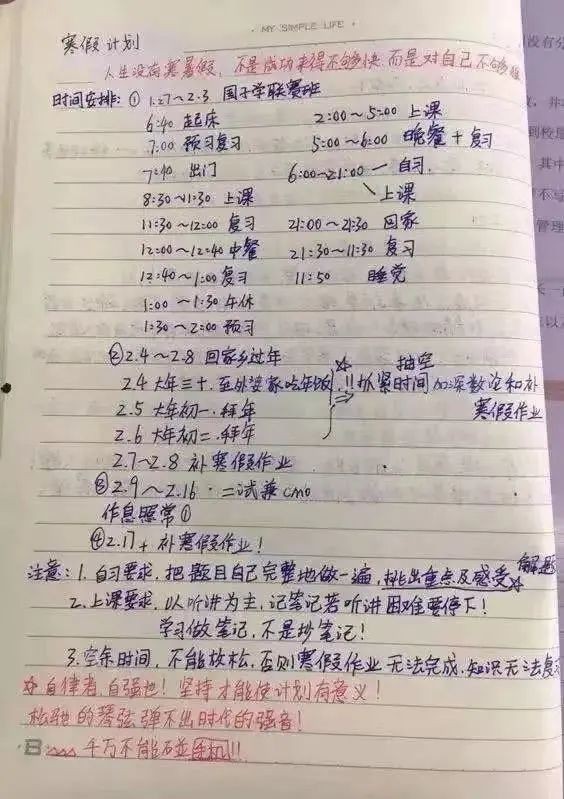 · MY SIMPLE LIFE ·
寒假计划
人生没有寒暑假，不是成功来得不够快，而是对自己不够狠
时间安排: ① 1.27~2.3 国子学联赛班
6:40 起床 2:00~5:00 上课
7:00 预习复习 5:00~6:00 晚餐+复习
7:40 出门 6:00~21:00 一 自习.
8:30~11:30 上课 \ 上课
11:30~12:00 复习 21:00~21:30 回家
12:00~12:40 中餐 21:30~11:30 复习
12:40~1:00 复习 11:50 睡觉
1:00~1:30 午休
1:30~2:00 预习
② 2.4~2.8 回家乡过年
2.4 大年三十.至外婆家吃年饭 ☆!! 抓紧时间 抽空 加深数论和补
2.5 大年初一.拜年 ⇒ 寒假作业
2.6 大年初二.拜年
2.7~2.8 补寒假作业
③ 2.9~2.16 · 二试兼cmo
作息照常①
④ 2.17+ 补寒假作业!
注意: 1.自习要求,把题目自己完整地做一遍,挑出重点及感受☆ 解题
2.上课要求,以听讲为主,记笔记若听讲困难要停下!
学习做笔记,不是抄笔记!
3.空余时间,不能放松,否则寒假作业无法完成,知识无法复
☆自律者,自强也! 坚持才能使计划有意义!
松弛的琴弦弹不出时代的强音!
千万不能碰手机!!!
没有分
并
到校是
其中
不写
管理